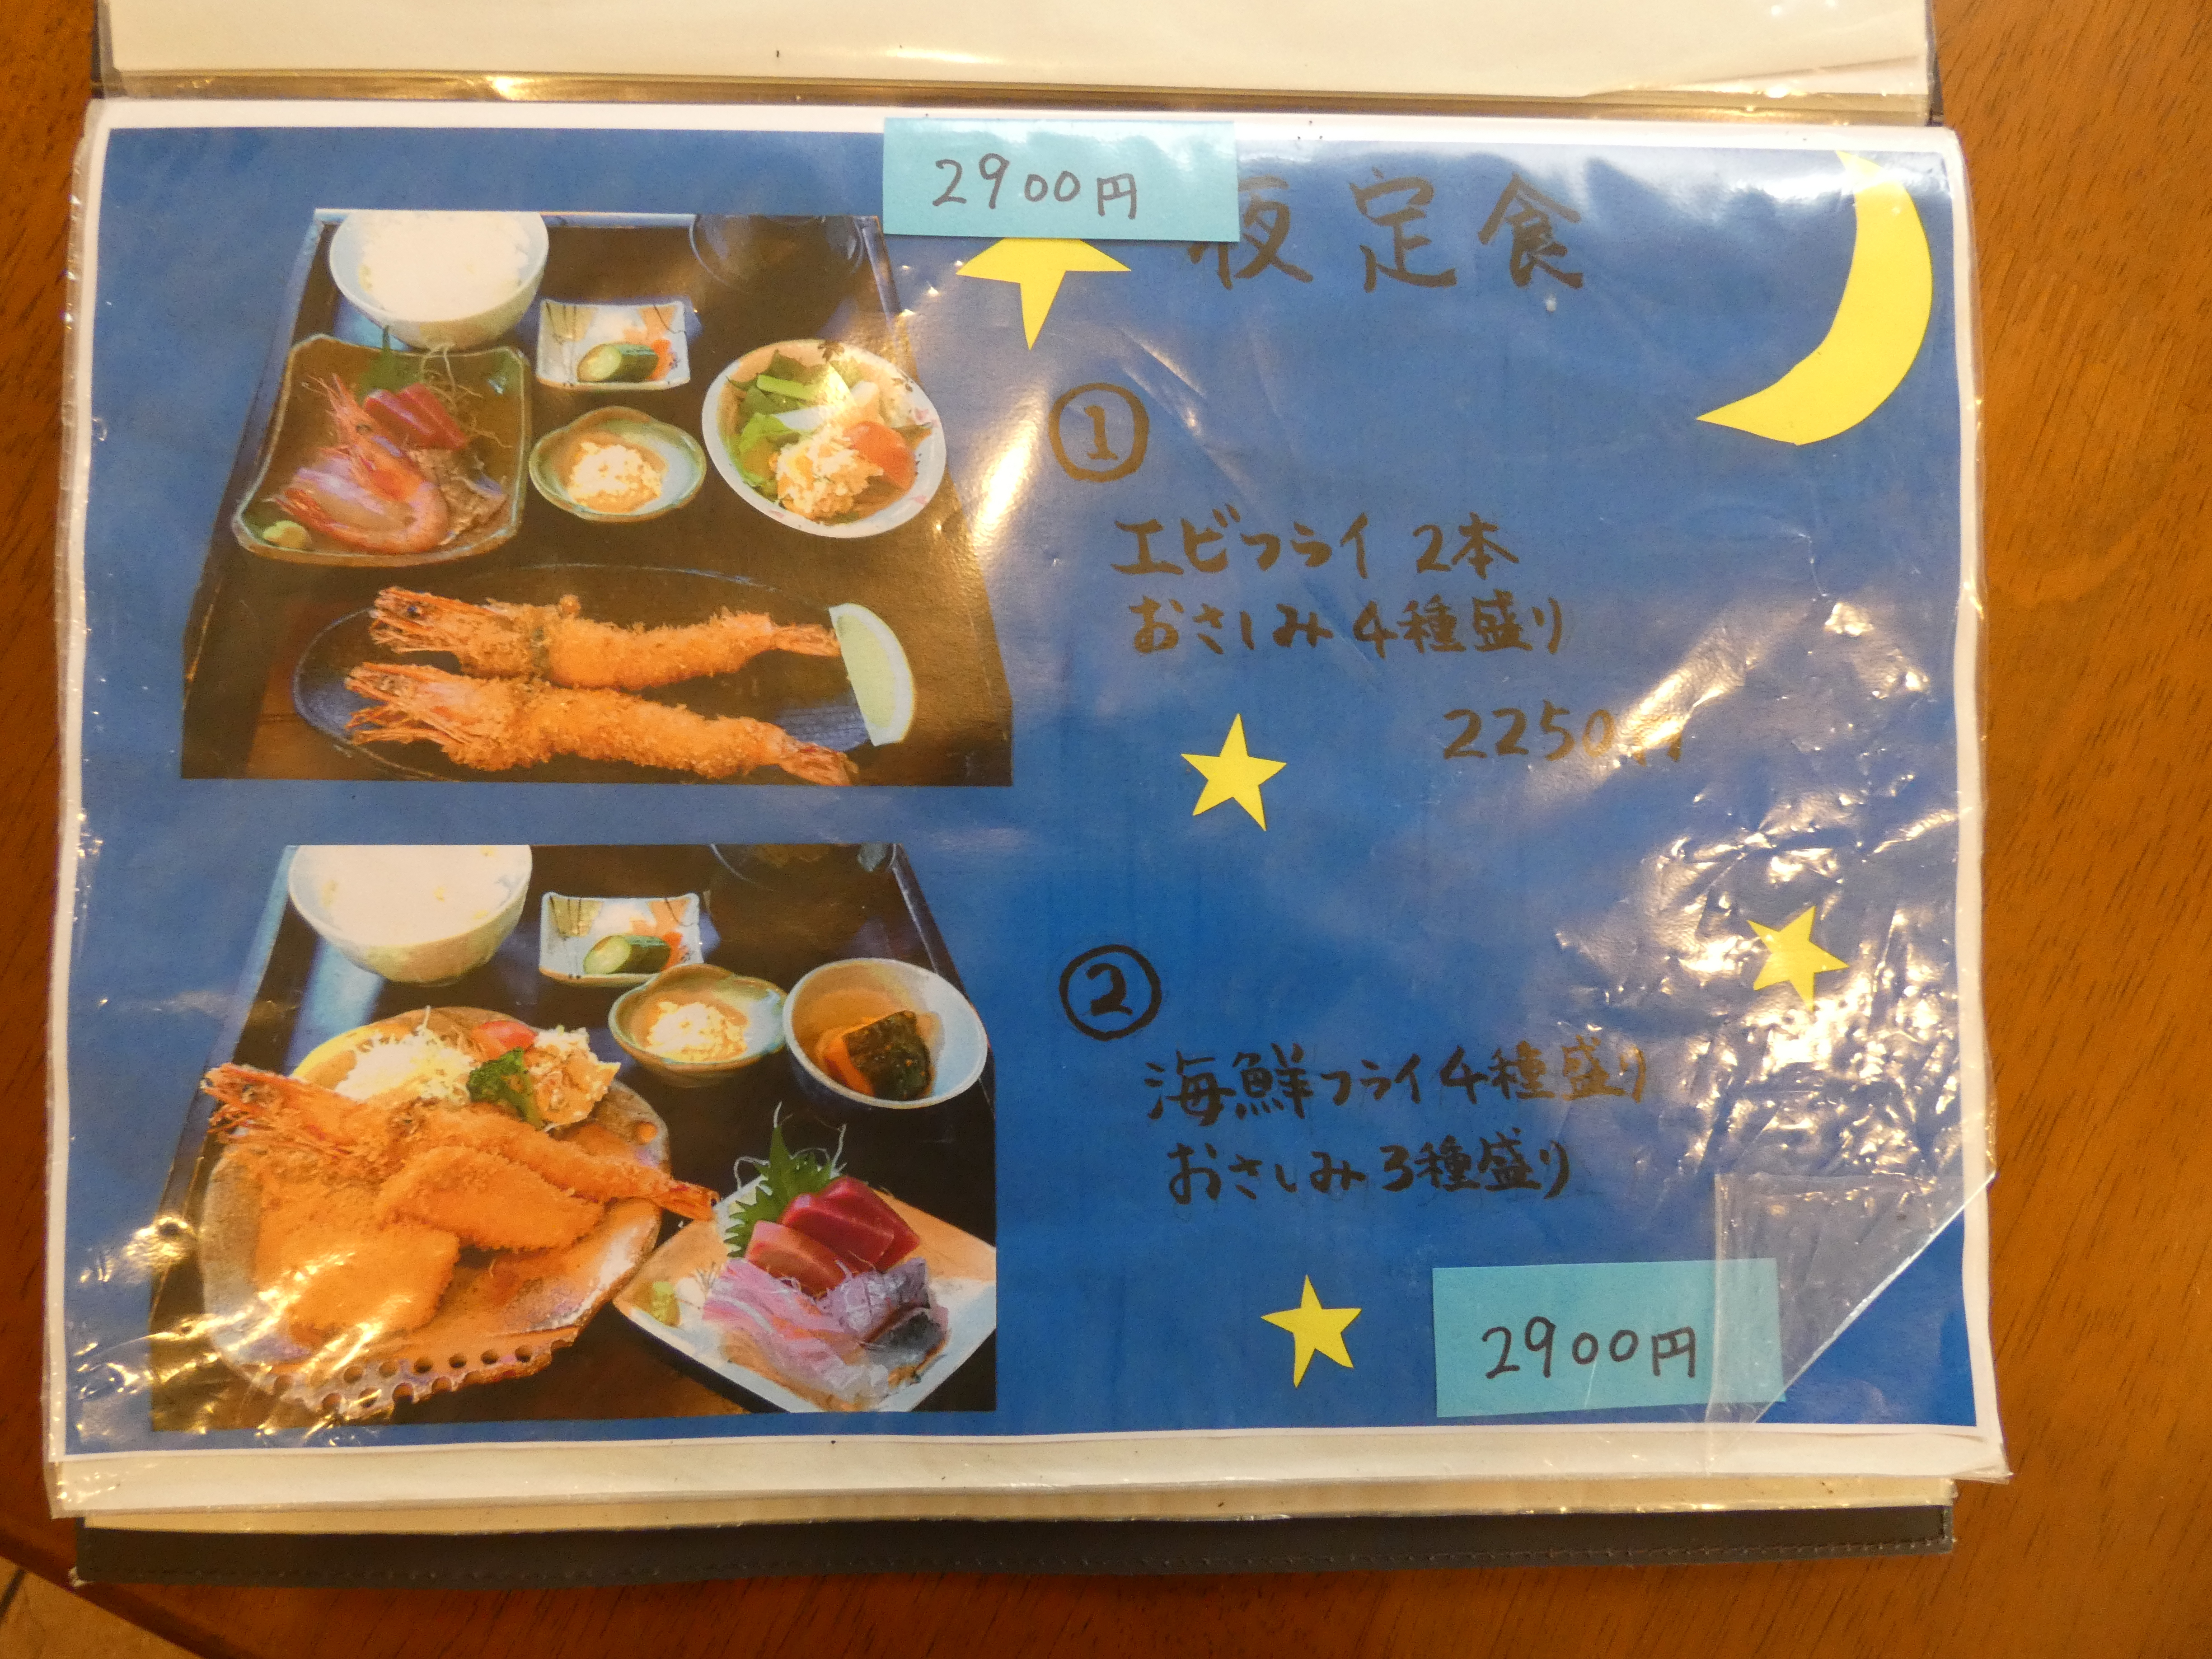 2900円
夜定食
①
エビフライ 2本
おさしみ 4種盛り
2250円
②
海鮮フライ 4種盛り
おさしみ 3種盛り
2900円